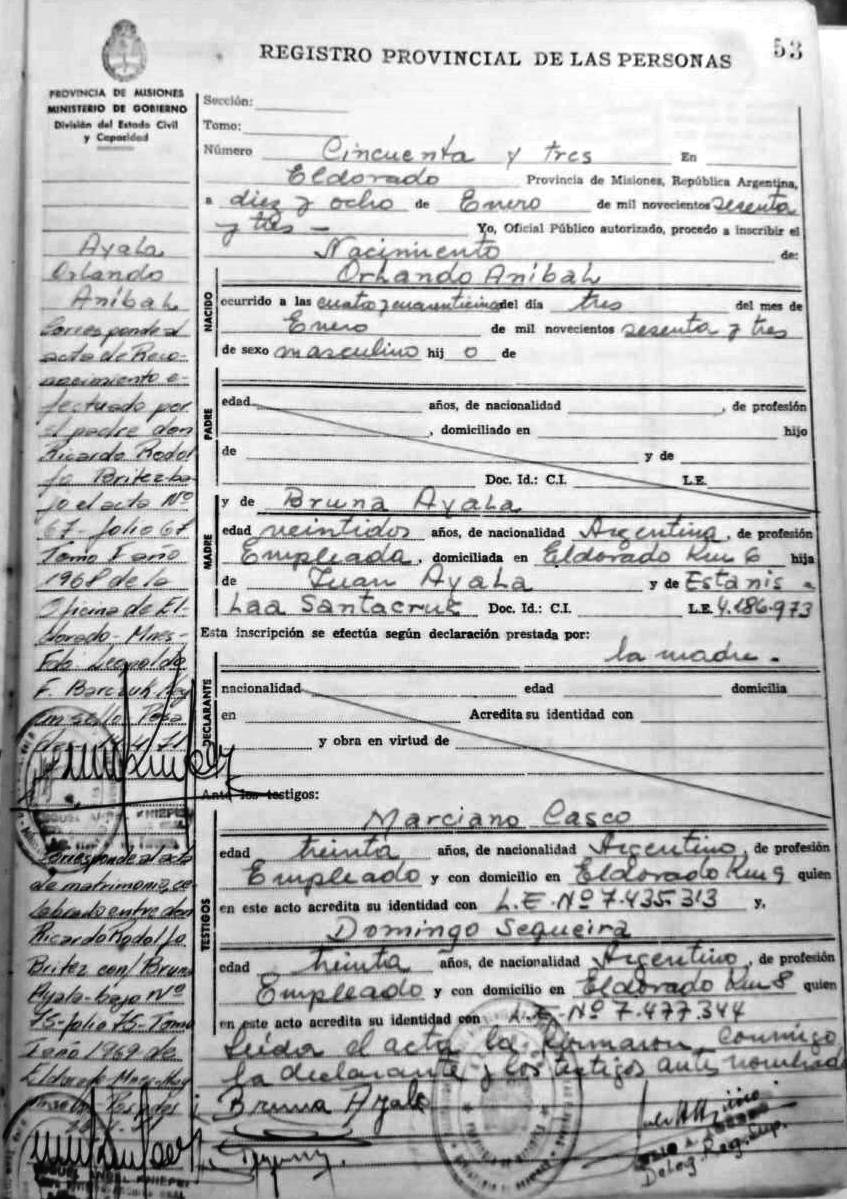 53
REGISTRO PROVINCIAL DE LAS PERSONAS
PROVINCIA DE MISIONES
MINISTERIO DE GOBIERNO
División del Estado Civil
y Capacidad
Sección:
Tomo:
Número Cincuenta y tres En
Eldorado Provincia de Misiones, República Argentina,
a diez y ocho de Enero de mil novecientos sesenta
y tres - Yo, Oficial Público autorizado, procedo a inscribir el
Nacimiento de:
Orlando Aníbal
NACIDO
ocurrido a las cuatro y cuarenticinco del día tres del mes de
Enero de mil novecientos sesenta y tres
de sexo masculino hij o de
PADRE
edad años, de nacionalidad , de profesión
, domiciliado en hijo
de y de
Doc. Id.: C.I. L.E.
MADRE
y de Bruna Ayala
edad veintidos años, de nacionalidad Argentina, de profesión
Empleada, domiciliada en Eldorado Km 6 hija
de Juan Ayala y de Estanis -
Laa Santacruk Doc. Id.: C.I. L.E. 4.186.973
Esta inscripción se efectúa según declaración prestada por:
la madre.
DECLARANTE
nacionalidad edad domicilia
en Acredita su identidad con
y obra en virtud de
Ante los testigos:
TESTIGOS
Marciano Casco
edad treinta años, de nacionalidad Argentino, de profesión
Empleado y con domicilio en Eldorado Km 9 quien
en este acto acredita su identidad con L.E. Nº 7.435.313 y,
Domingo Sequeira
edad treinta años, de nacionalidad Argentino, de profesión
Empleado y con domicilio en Eldorado Km 8 quien
en este acto acredita su identidad con L.E. Nº 7.477.344
Leída el acta la firmaron, conmigo
la declarante y los testigos ante nombrado
Bruna Ayala
Deleg. Reg. Sup.
Ayala
Orlando
Aníbal
Corresponde al
acta de Reco-
nocimiento e-
fectuado por
el padre don
Ricardo Rodol
fo Britez ba-
jo el acta Nº
67- folio 67
Tomo I año
1968 de la
Oficina de El-
dorado- Mnes-
Fdo. Leopoldo
F. Barczuk Hay
un sello Posa
Corresponde al acta
de matrimonio ce-
lebrado entre don
Ricardo Rodolfo
Britez con/ Bruna
Ayala- bajo Nº
75- folio 75- Tomo
I año 1969 de
Eldorado- Mnes- Hay
un sello Posadas